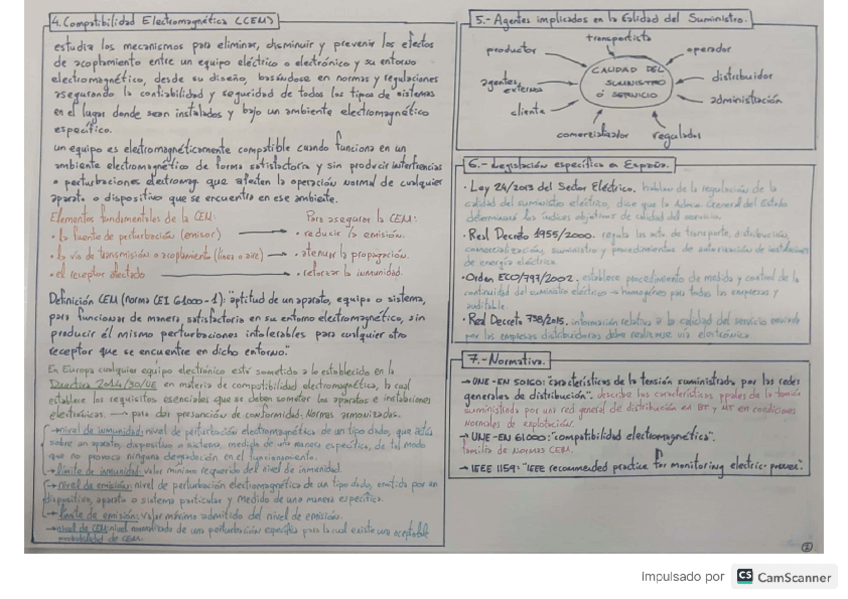 4. Compatibilidad Electromagnética (CEM)
estudia los mecanismos para eliminar, disminuir y prevenir los efectos
de acoplamiento entre un equipo eléctrico o electrónico y su entorno
electromagnético, desde su diseño, basándose en normas y regulaciones
asegurando la confiabilidad y seguridad de todos los tipos de sistemas
en el lugar donde sean instalados y bajo un ambiente electromagnético
específico.
un equipo es electromagnéticamente compatible cuando funciona en un
ambiente electromagnético de forma satisfactoria y sin producir interferencias
o perturbaciones electromag. que afecten la operación normal de cualquier
aparato o dispositivo que se encuentre en ese ambiente.
Elementos fundamentales de la CEM: Para asegurar la CEM:
· la fuente de perturbación (emisor) → · reducir la emisión.
· la vía de transmisión o acoplamiento (línea o aire) → · atenuar la propagación.
· el receptor afectado → · reforzar la inmunidad.
Definición CEM (norma CEI 61000-1): "aptitud de un aparato, equipo o sistema,
para funcionar de manera satisfactoria en su entorno electromagnético, sin
producir él mismo perturbaciones intolerables para cualquier otro
receptor que se encuentre en dicho entorno."
En Europa cualquier equipo electrónico está sometido a lo establecido en la
Directiva 2014/30/UE en materia de compatibilidad electromagnética, la cual
establece los requisitos esenciales que se deben someter los aparatos e instalaciones
electrónicas. → para dar presunción de conformidad: Normas armonizadas.
→ nivel de inmunidad: nivel de perturbación electromagnética de un tipo dado, que actúa
sobre un aparato, dispositivo o sistema, medida de una manera específica, de tal modo
que no provoca ninguna degradación en el funcionamiento.
→ límite de inmunidad: valor mínimo requerido del nivel de inmunidad.
→ nivel de emisión: nivel de perturbación electromagnética de un tipo dado, emitida por un
dispositivo, aparato o sistema particular y medido de una manera específica.
→ límite de emisión: valor máximo admitido del nivel de emisión.
→ nivel de CEM: nivel normalizado de una perturbación específica para la cual existe una aceptable
probabilidad de CEM.
5.- Agentes implicados en la Calidad del Suministro.
transportista
productor
operador
agentes externos
CALIDAD DEL
SUMINISTRO
Ó SERVICIO
distribuidor
cliente
administración
comercializador
regulador
6.- Legislación específica en España.
· Ley 24/2013 del Sector Eléctrico. hablan de la regulación de la
calidad del suministro eléctrico, dice que la Admin General del Estado
determinará los índices objetivos de calidad del servicio.
· Real Decreto 1955/2000. regula las acts de transporte, distribución,
comercialización, suministro y procedimientos de autorización de instalaciones
de energía eléctrica.
· Orden ECO/797/2002. establece procedimiento de medida y control de la
continuidad del suministro eléctrico → homogéneo para todas las empresas y
auditable.
· Real Decreto 738/2015. información relativa a la calidad del servicio
por las empresas distribuidoras debe realizarse vía electrónica.
7.- Normativa.
→ UNE-EN 50160: "características de la tensión suministrada por las redes
generales de distribución". describe las características ppales de la tensión
suministrada por una red general de distribución en BT y MT en condiciones
normales de explotación.
→ UNE-EN 61000: "compatibilidad electromagnética".
familia de normas CEM.
→ IEEE 1159: "IEEE recommended practice for monitoring electric power."
2
Impulsado por CS CamScanner